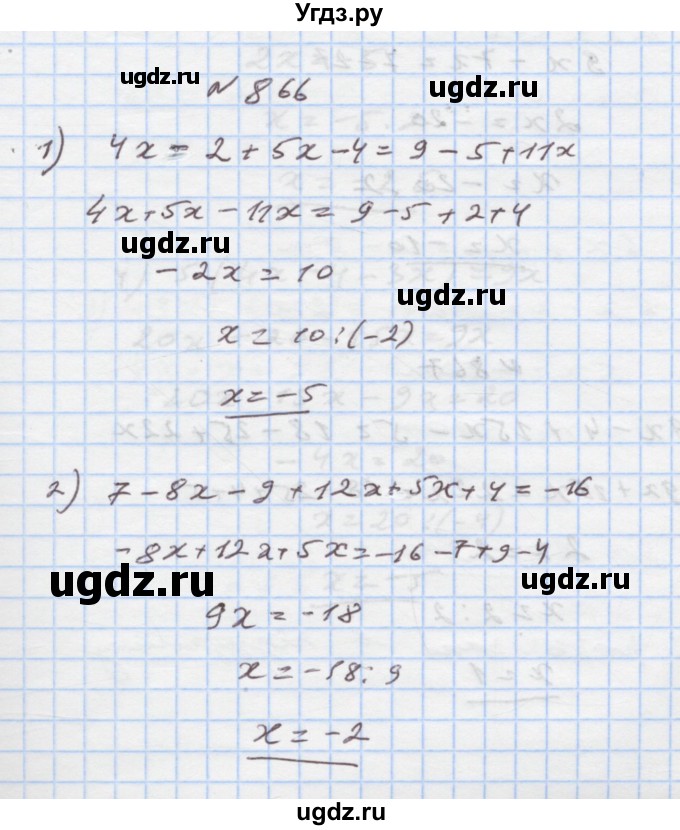 Угдз.ру
ugdz.ru
ugdz.ru
№ 866
1) 4x = 2 + 5x - 4 = 9 - 5 + 11x
4x + 5x - 11x = 9 - 5 + 2 + 4
ugdz.ru
- 2x = 10
ugdz.ru
x = 10 : (-2)
x = -5
2) 7 - 8x - 9 + 12x + 5x + 4 = -16
-8x + 12x + 5x = -16 - 7 + 9 - 4
ugdz.ru
ugdz.ru
9x = -18
x = -18 : 9
x = -2
ugdz.ru